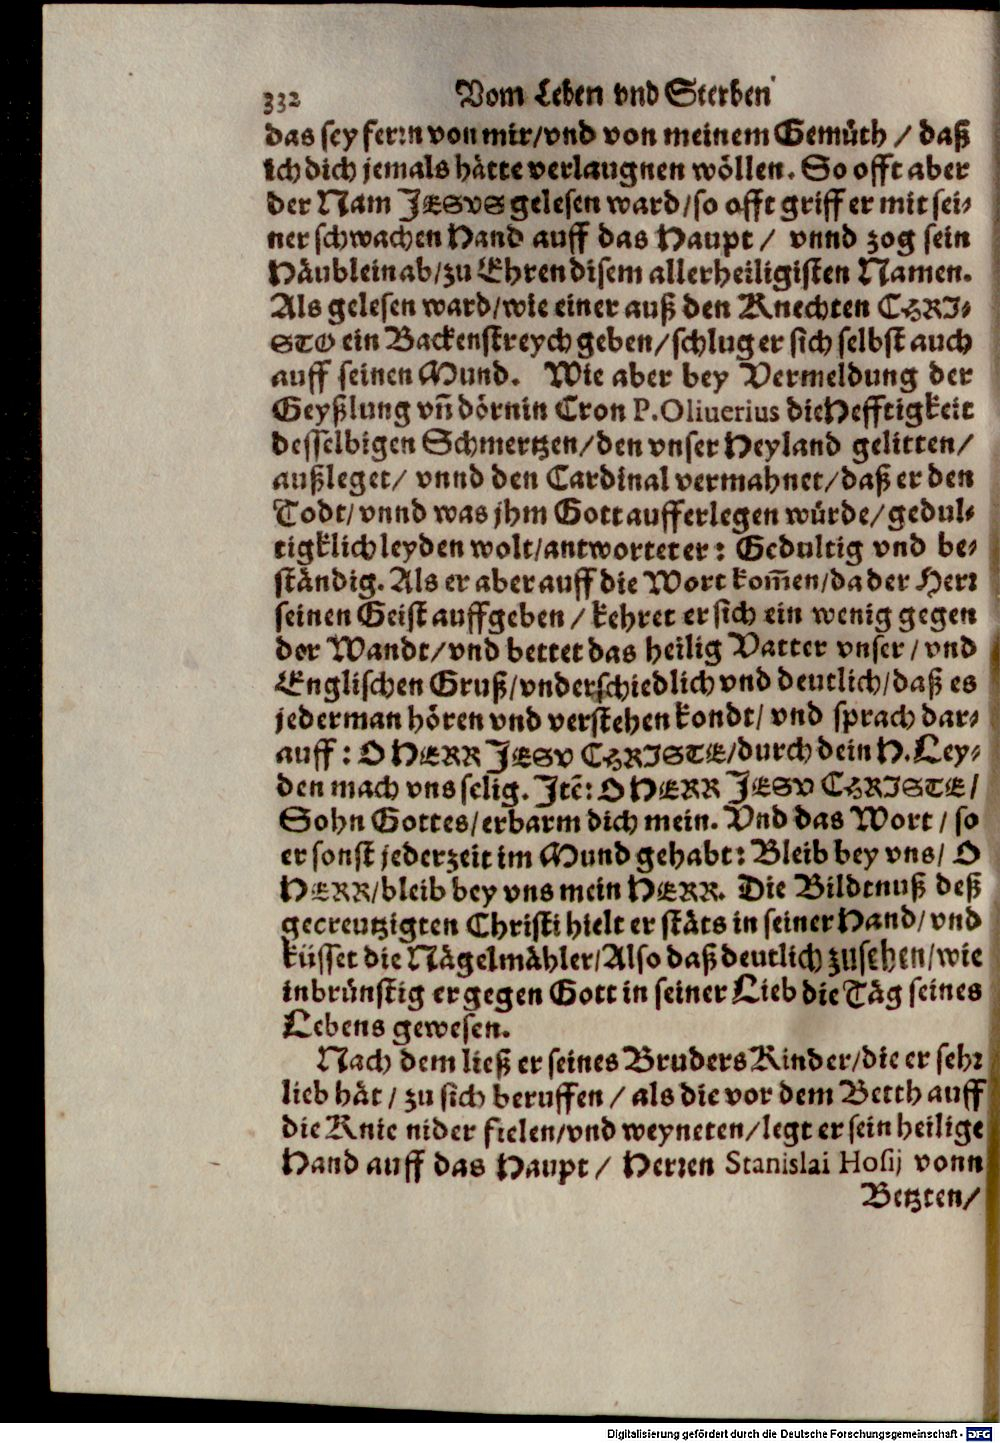 332 Vom Leben vnd Sterben
das sey ferꝛn von mir/vnd von meinem Gemüth / daß
ich dich jemals hätte verlaugnen wöllen. So offt aber
der Nam JESVS gelesen ward/so offt griff er mit sei-
ner schwachen Hand auff das Haupt / vnnd zog sein
Häublein ab/zu Ehren disem allerheiligisten Namen.
Als gelesen ward/wie einer auß den Knechten CHRI-
STO ein Backenstreych geben/schlug er sich selbst auch
auff seinen Mund. Wie aber bey Vermeldung der
Geyßlung vñ dörnin Cron P.Oliuerius die Hefftigkeit
desselbigen Schmertzen/den vnser Heyland gelitten/
außleget/ vnnd den Cardinal vermahnet/daß er den
Todt/vnnd was jhm Gott aufferlegen würde/gedul-
tigklich leyden wolt/antwortet er: Gedultig vnd be-
ständig. Als er aber auff die Wort kom̃en/da der Herꝛ
seinen Geist auffgeben / kehret er sich ein wenig gegen
der Wandt/vnd bettet das heilig Vatter vnser / vnd
Englischen Gruß/vnderschiedlich vnd deutlich/daß es
jederman hören vnd verstehen kondt/ vnd sprach dar-
auff: O HERR JESV CHRISTE/durch dein H.Ley-
den mach vns selig. Jtẽ: O HERR JESV CHRISTE/
Sohn Gottes/erbarm dich mein. Vnd das Wort / so
er sonst jederzeit im Mund gehabt: Bleib bey vns/ O
HERR/bleib bey vns mein HERR. Die Bildtnuß deß
gecreutzigten Christi hielt er stäts in seiner Hand/vnd
küsset die Nägelmähler/Also daß deutlich zusehen/wie
inbrünstig er gegen Gott in seiner Lieb die Täg seines
Lebens gewesen.
Nach dem ließ er seines Bruders Kinder/die er sehꝛ
lieb hät / zu sich beruffen / als die vor dem Betth auff
die Knie nider fielen/vnd weyneten/legt er sein heilige
Hand auff das Haupt / Herꝛen Stanislai Hosij vonn
Betzten/
Digitalisierung gefördert durch die Deutsche Forschungsgemeinschaft - DFG